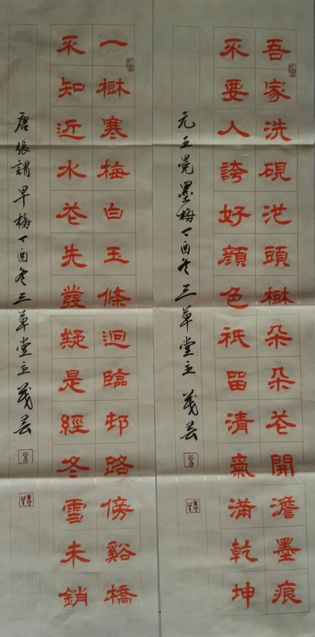 吾家洗硯池頭樹朵朵花開澹墨痕
不要人誇好顏色祇留清氣滿乾坤
元王冕墨梅丁酉冬三草堂主義芸
一樹寒梅白玉條迥臨邨路傍谿橋
不知近水花先發疑是經冬雪未銷
唐張謂早梅丁酉冬三草堂主義芸